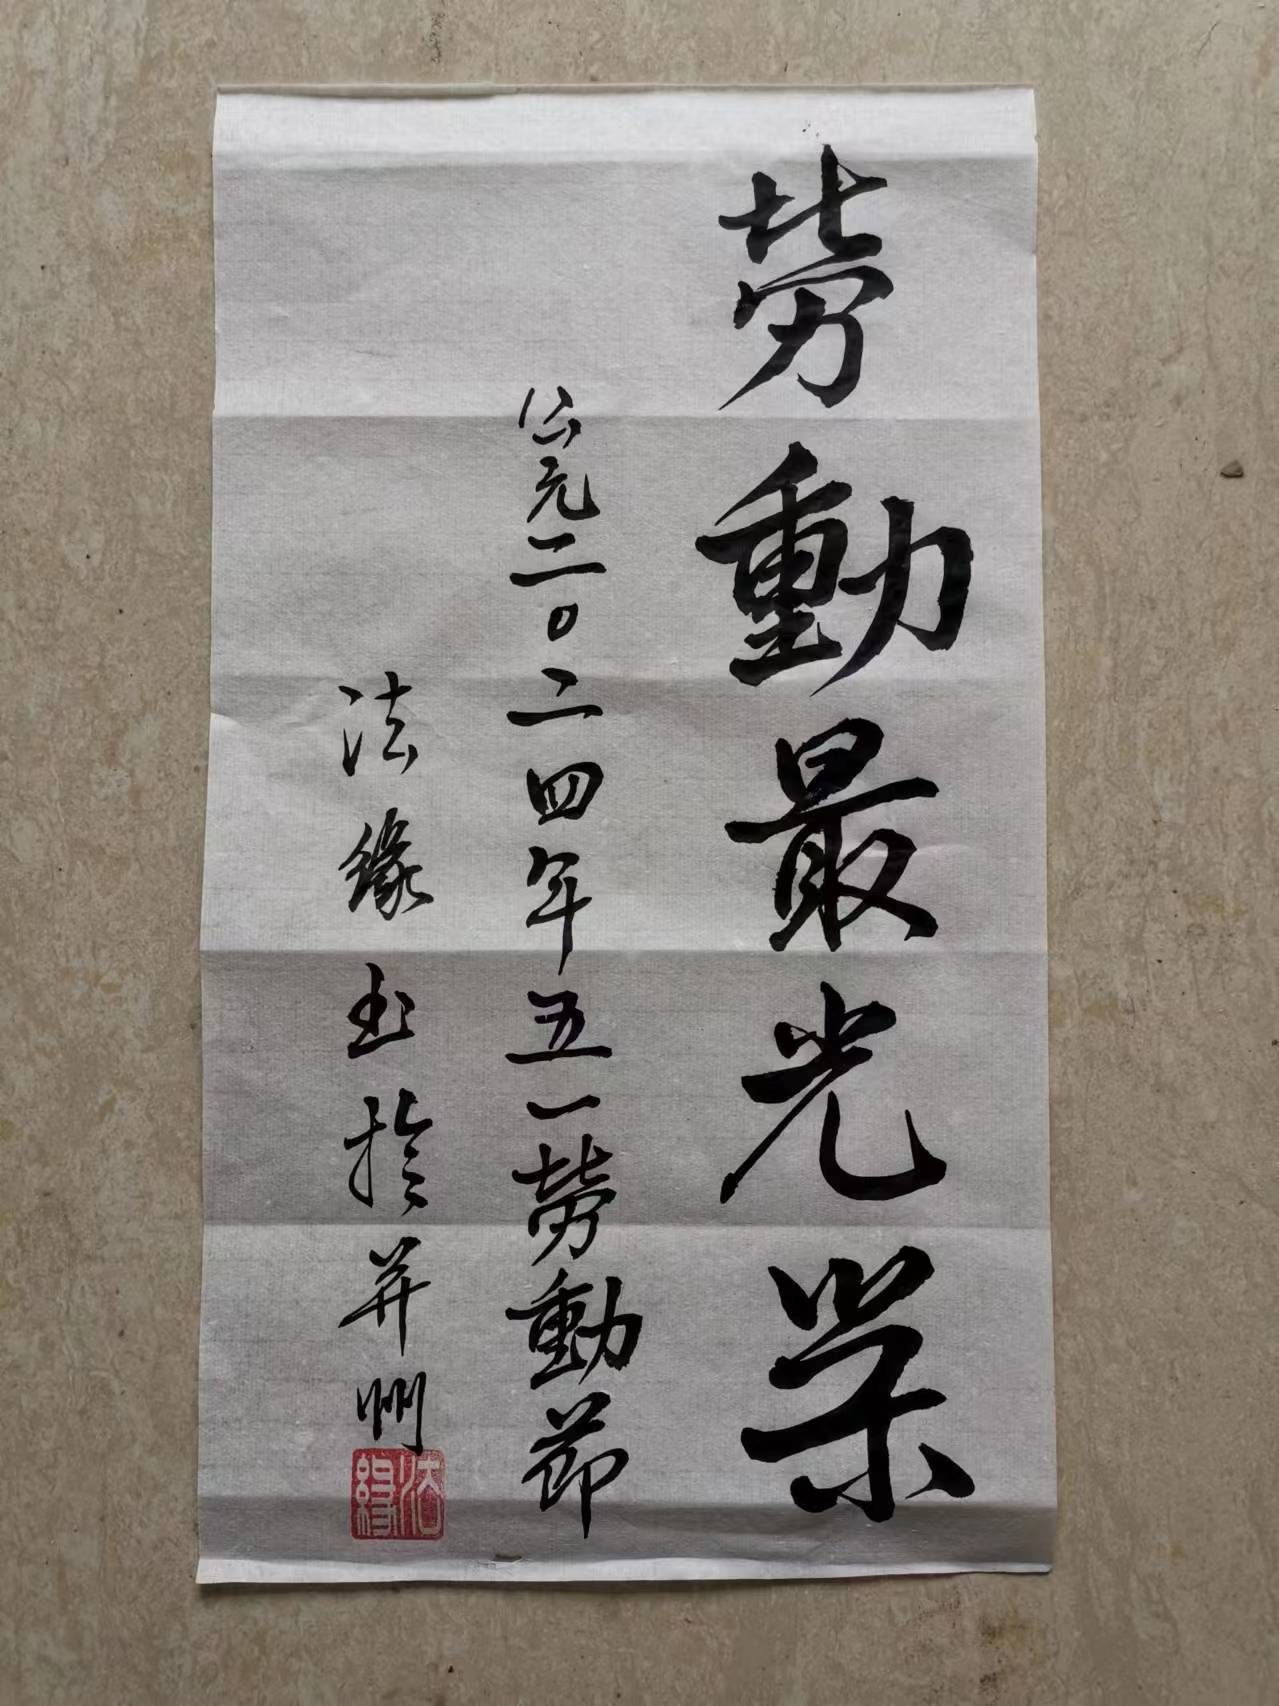 勞動最光榮
公元二〇二四年五一勞動節
法緣书於并州
法緣